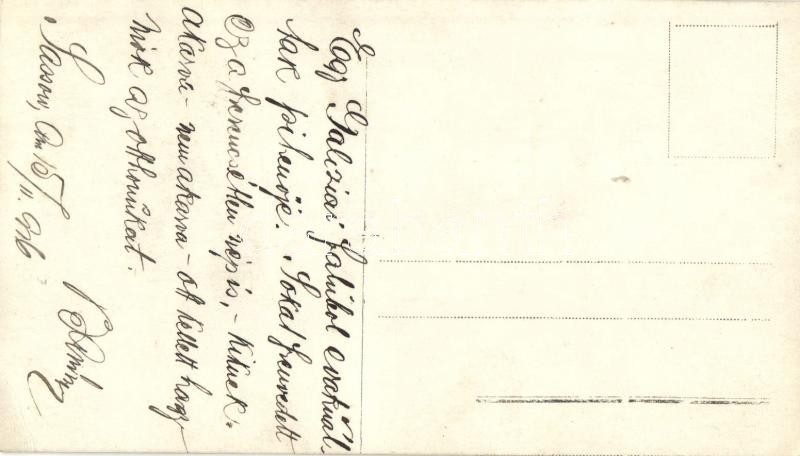 Egy Galiziai faluból evakuál-
tak pihenője. Sokat szenvedett
ez a szerencsétlen nép is, - kiknek.
akarva - nem akarva - ott kellett hagy-
niok az otthonukat.
Sassow, am 15/II. 916